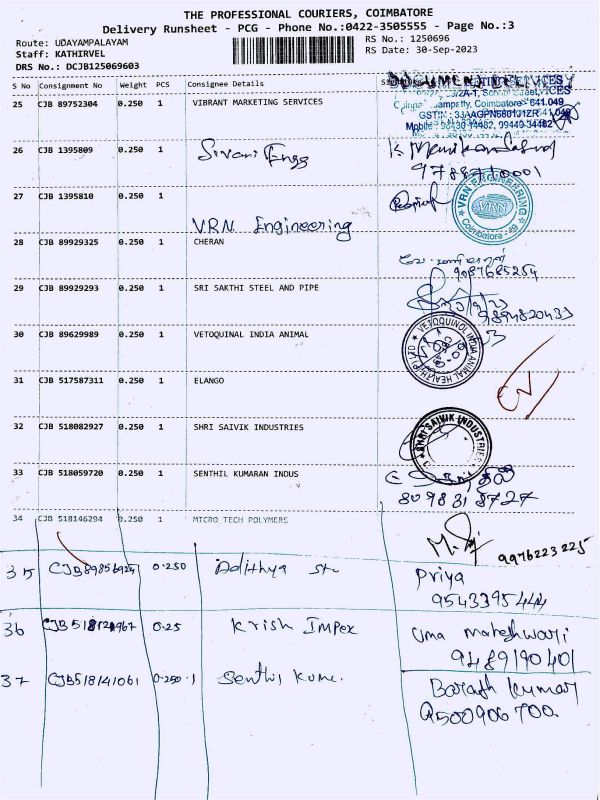 THE PROFESSIONAL COURIERS, COIMBATORE
Delivery Runsheet - PCG - Phone No.:0422-3505555 - Page No.:3
Route: UDAYAMPALAYAM RS No.: 1250696
Staff: KATHIRVEL RS Date: 30-Sep-2023
DRS No.: DCJB125069603
S No Consignment No Weight PCS Consignee Details
25 CJB 89752304 0.250 1 VIBRANT MARKETING SERVICES
Coimbatore - 641.049
26 CJB 1395809 0.250 1 Sivani Engg
9788710001
27 CJB 1395810 0.250 1
VRN Engineering
VRN ENGINEERING
VRN
Coimbatore - 49
28 CJB 89929325 0.250 1 CHERAN
29 CJB 89929293 0.250 1 SRI SAKTHI STEEL AND PIPE
9894820433
30 CJB 89629989 0.250 1 VETOQUINAL INDIA ANIMAL
VETOQUINOL INDIA ANIMAL HEALTH P LTD
31 CJB 517587311 0.250 1 ELANGO
32 CJB 518082927 0.250 1 SHRI SAIVIK INDUSTRIES
SHRI SAIVIK INDUSTRIES
33 CJB 518059720 0.250 1 SENTHIL KUMARAN INDUS
8098318727
34 CJB 518146294 0.250 1 MICRO TECH POLYMERS
9976223225
35 0.250 Adithya
Priya
9543395444
36 0.25 Krish Impex
Uma maheshwari
9489190401
37 CJB518141061 0.250 1 Senthil Kum.
Barath Kumar
9500906700